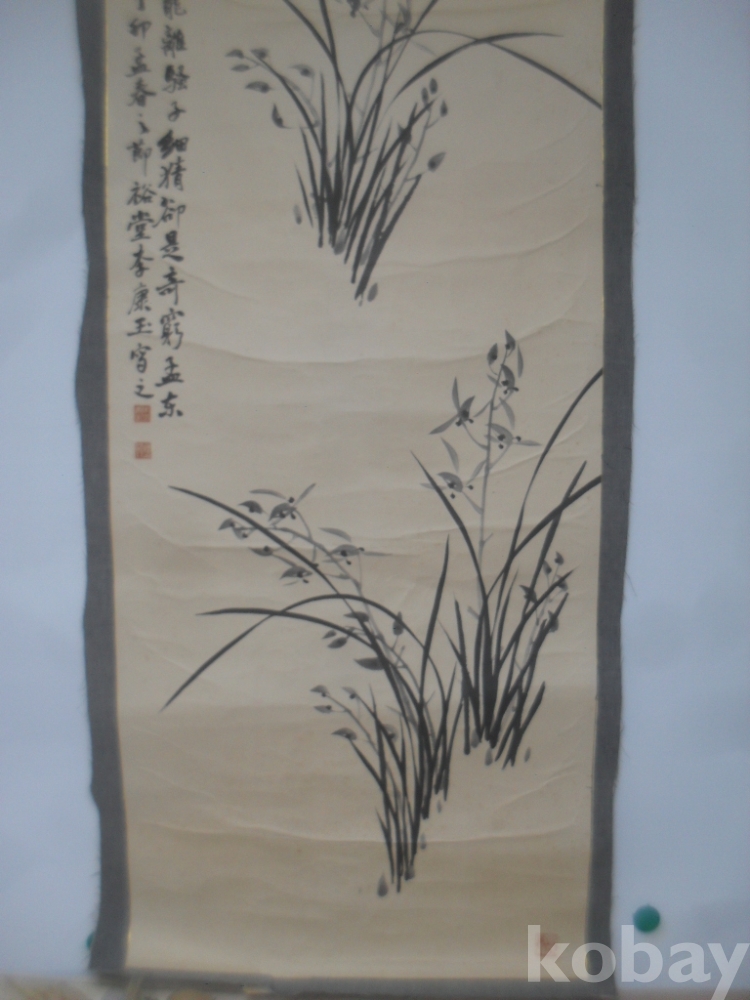 離騷子細猜卻是奇窮孟东
卯孟春之節裕堂李康玉寫之
kobay